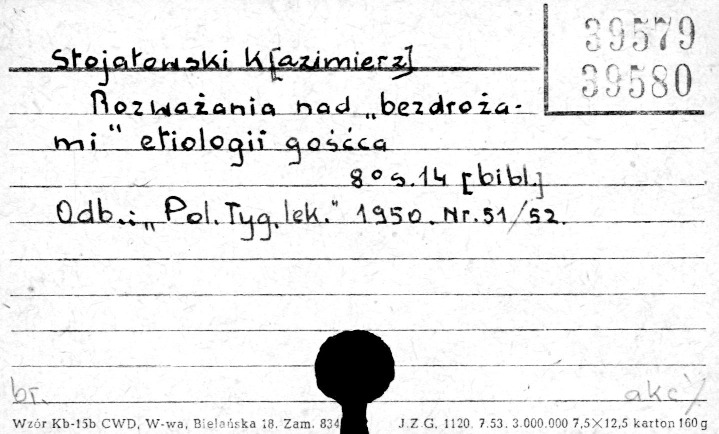 39579
39580
Stojałowski K[azimierz]
Rozważania nad „bezdroża-
mi" etiologii gośćca
8° s. 14 [bibl.]
Odb.: „Pol. Tyg. lek." 1950. Nr. 51/52.
br.
akc
Wzór Kb-15b CWD, W-wa, Bielańska 18. Zam. 834
J.Z.G. 1120. 7.53. 3.000.000 7,5×12,5 karton 160 g